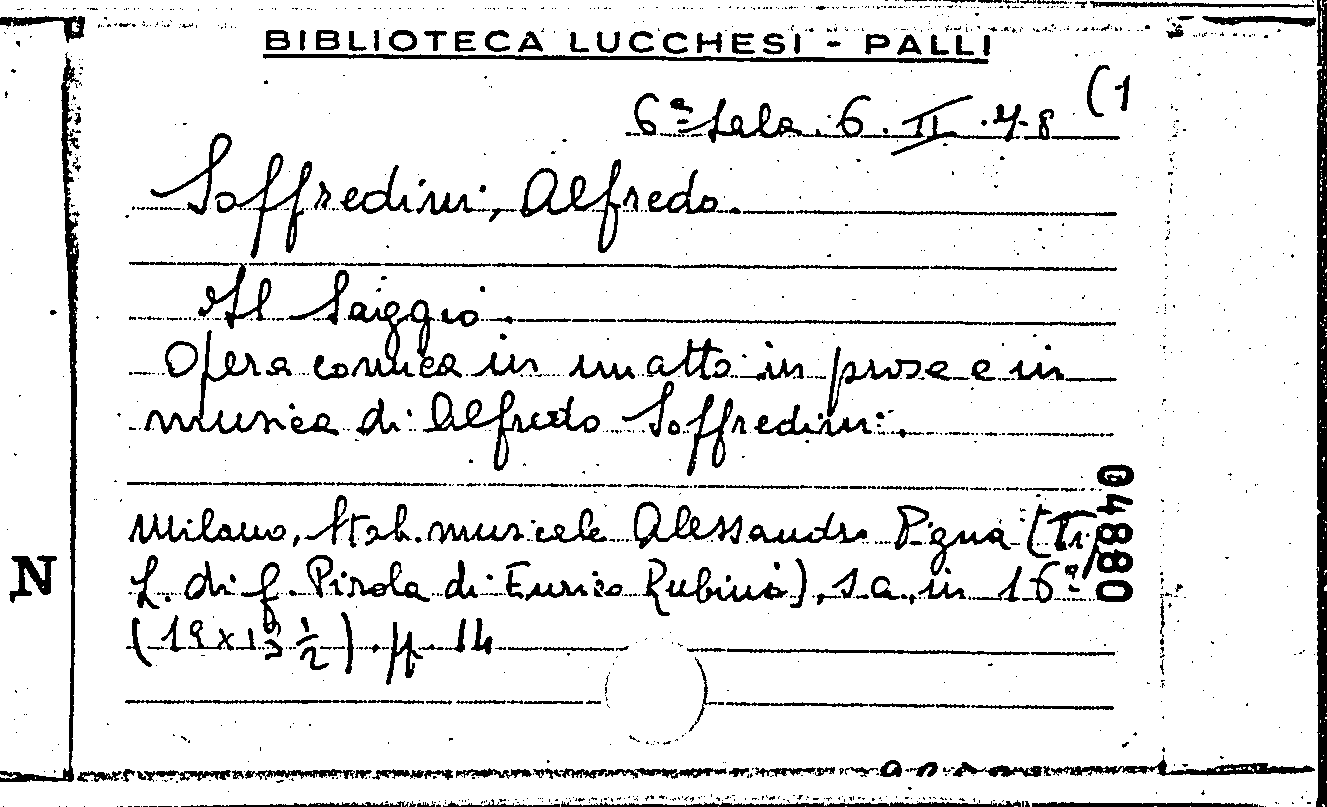 BIBLIOTECA LUCCHESI - PALLI
(1
6ª Sala. 6. II. 48
Soffredini, Alfredo.
Il Saggio.
Opera comica in un atto in prosa e in
musica di Alfredo Soffredini.
04880
Milano, Stab. musicale Alessandro Pigna (Tip.
N
L. di f. Pirola di Enrico Rubini), s.a., in 16º
(19 x 13 ½). pp. 14